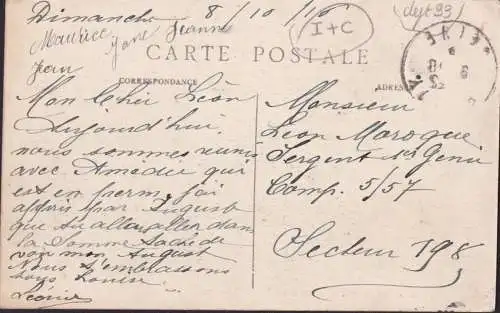 Dimanche 8/10/16
Maurice Jane Jeanne
Jean
I+C
(dept 93)
CARTE POSTALE
CORRESPONDANCE
ADRESSE
Mon Cher Léon
Aujourd'hui
nous sommes réunis
avec Amédée qui
est en perm. j'ai
appris par August
que tu allais aller dans
la Somme tache de
voir mon August
Nous t'embrassons
tous Louise
Léonie
Monsieur
Léon Maroque
Sergent Génie
Comp. 5/57
Secteur 198